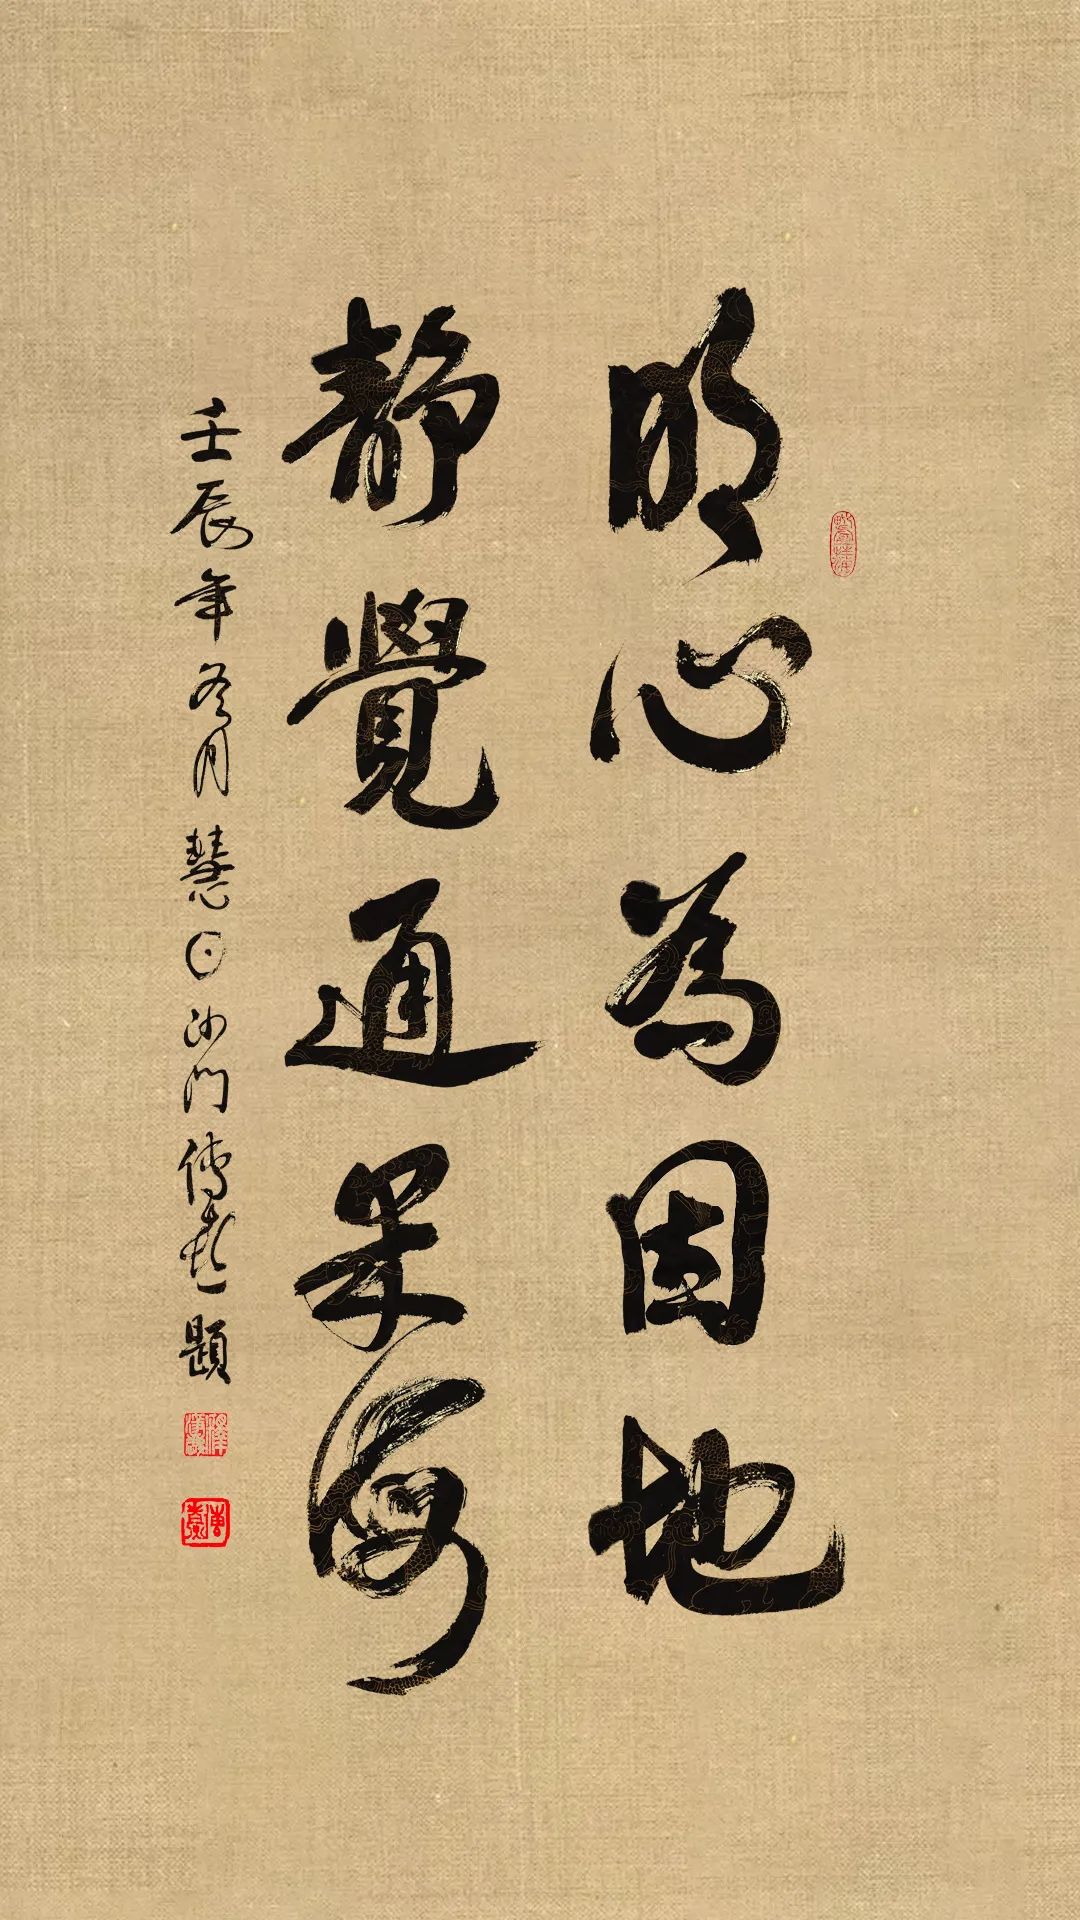 明心為因地
靜覺通果海
壬辰年冬月慧日沙門傳熹題